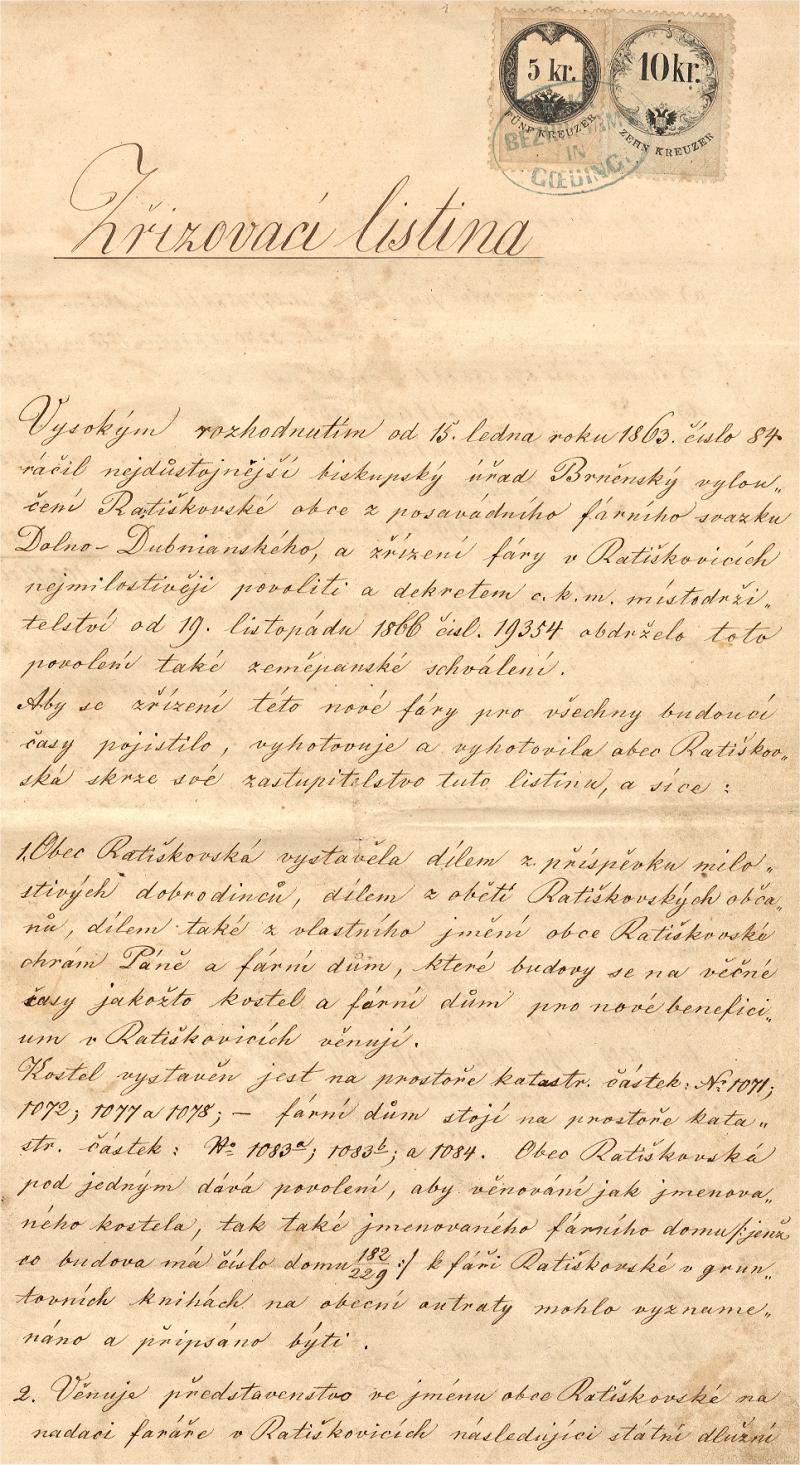 5 kr.
FÜNF KREUZER
10 kr.
ZEHN KREUZER
IN
GŒDING
Zřizovací listina
Vysokým rozhodnutím od 15. ledna roku 1863. číslo 84
ráčil nejdůstojnější biskupský úřad Brněnský vylou„
čení Ratiškovské obce z posavádního fárního svazku
Dolno-Dubnianského, a zřízení fáry v Ratiškovicích
nejmilostivěji povoliti a dekretem c. k. m. místodrži„
telství od 19. listopádu 1866 čisl. 19354 obdrželo toto
povolení také zeměpanské schválení.
Aby se zřízení této nové fáry pro všechny budoucí
časy pojistilo, vyhotovuje a vyhotovila obec Ratiškov„
ská skrze své zastupitelstvo tuto listinu, a sice:
1. Obec Ratiškovská vystavěla dílem z příspěvku milo„
stivých dobrodinců, dílem z obětí Ratiškovských obča„
nů, dílem také z vlastního jmění obce Ratiškovské
chrám Páně a fární dům, které budovy se na věčné
časy jakožto kostel a fární dům pro nové benefici„
um v Ratiškovicích věnují.
Kostel vystavěn jest na prostoře katastr. částek: No 1071;
1072; 1077 a 1078; — fární dům stojí na prostoře kata„
str. částek: No 1083a; 1083b; a 1084. Obec Ratiškovská
pod jedným dává povolení, aby věnování jak jmenova„
ného kostela, tak také jmenovaného fárního domu /: jenž
co budova má číslo domu 182/229 :/ k fáři Ratiškovské v grun„
tovních knihách na obecní outraty mohlo vyzname„
náno a připsáno býti.
2. Věnuje představenstvo ve jménu obce Ratiškovské na
nadaci faráře v Ratiškovicích následující státní dlužní